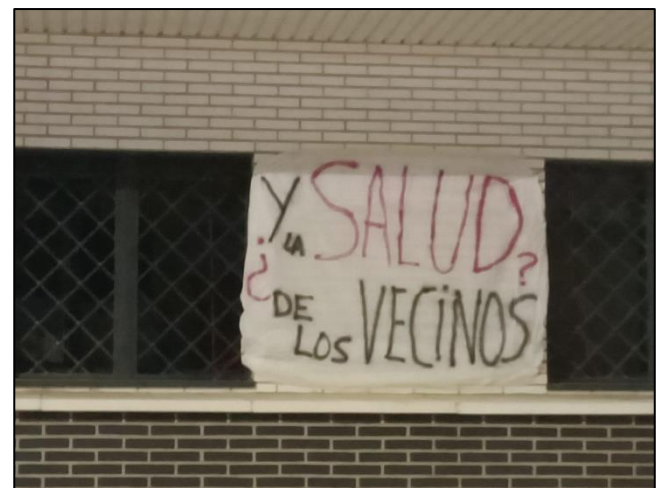 Y LA SALUD
¿ ?
DE LOS VECiNOS